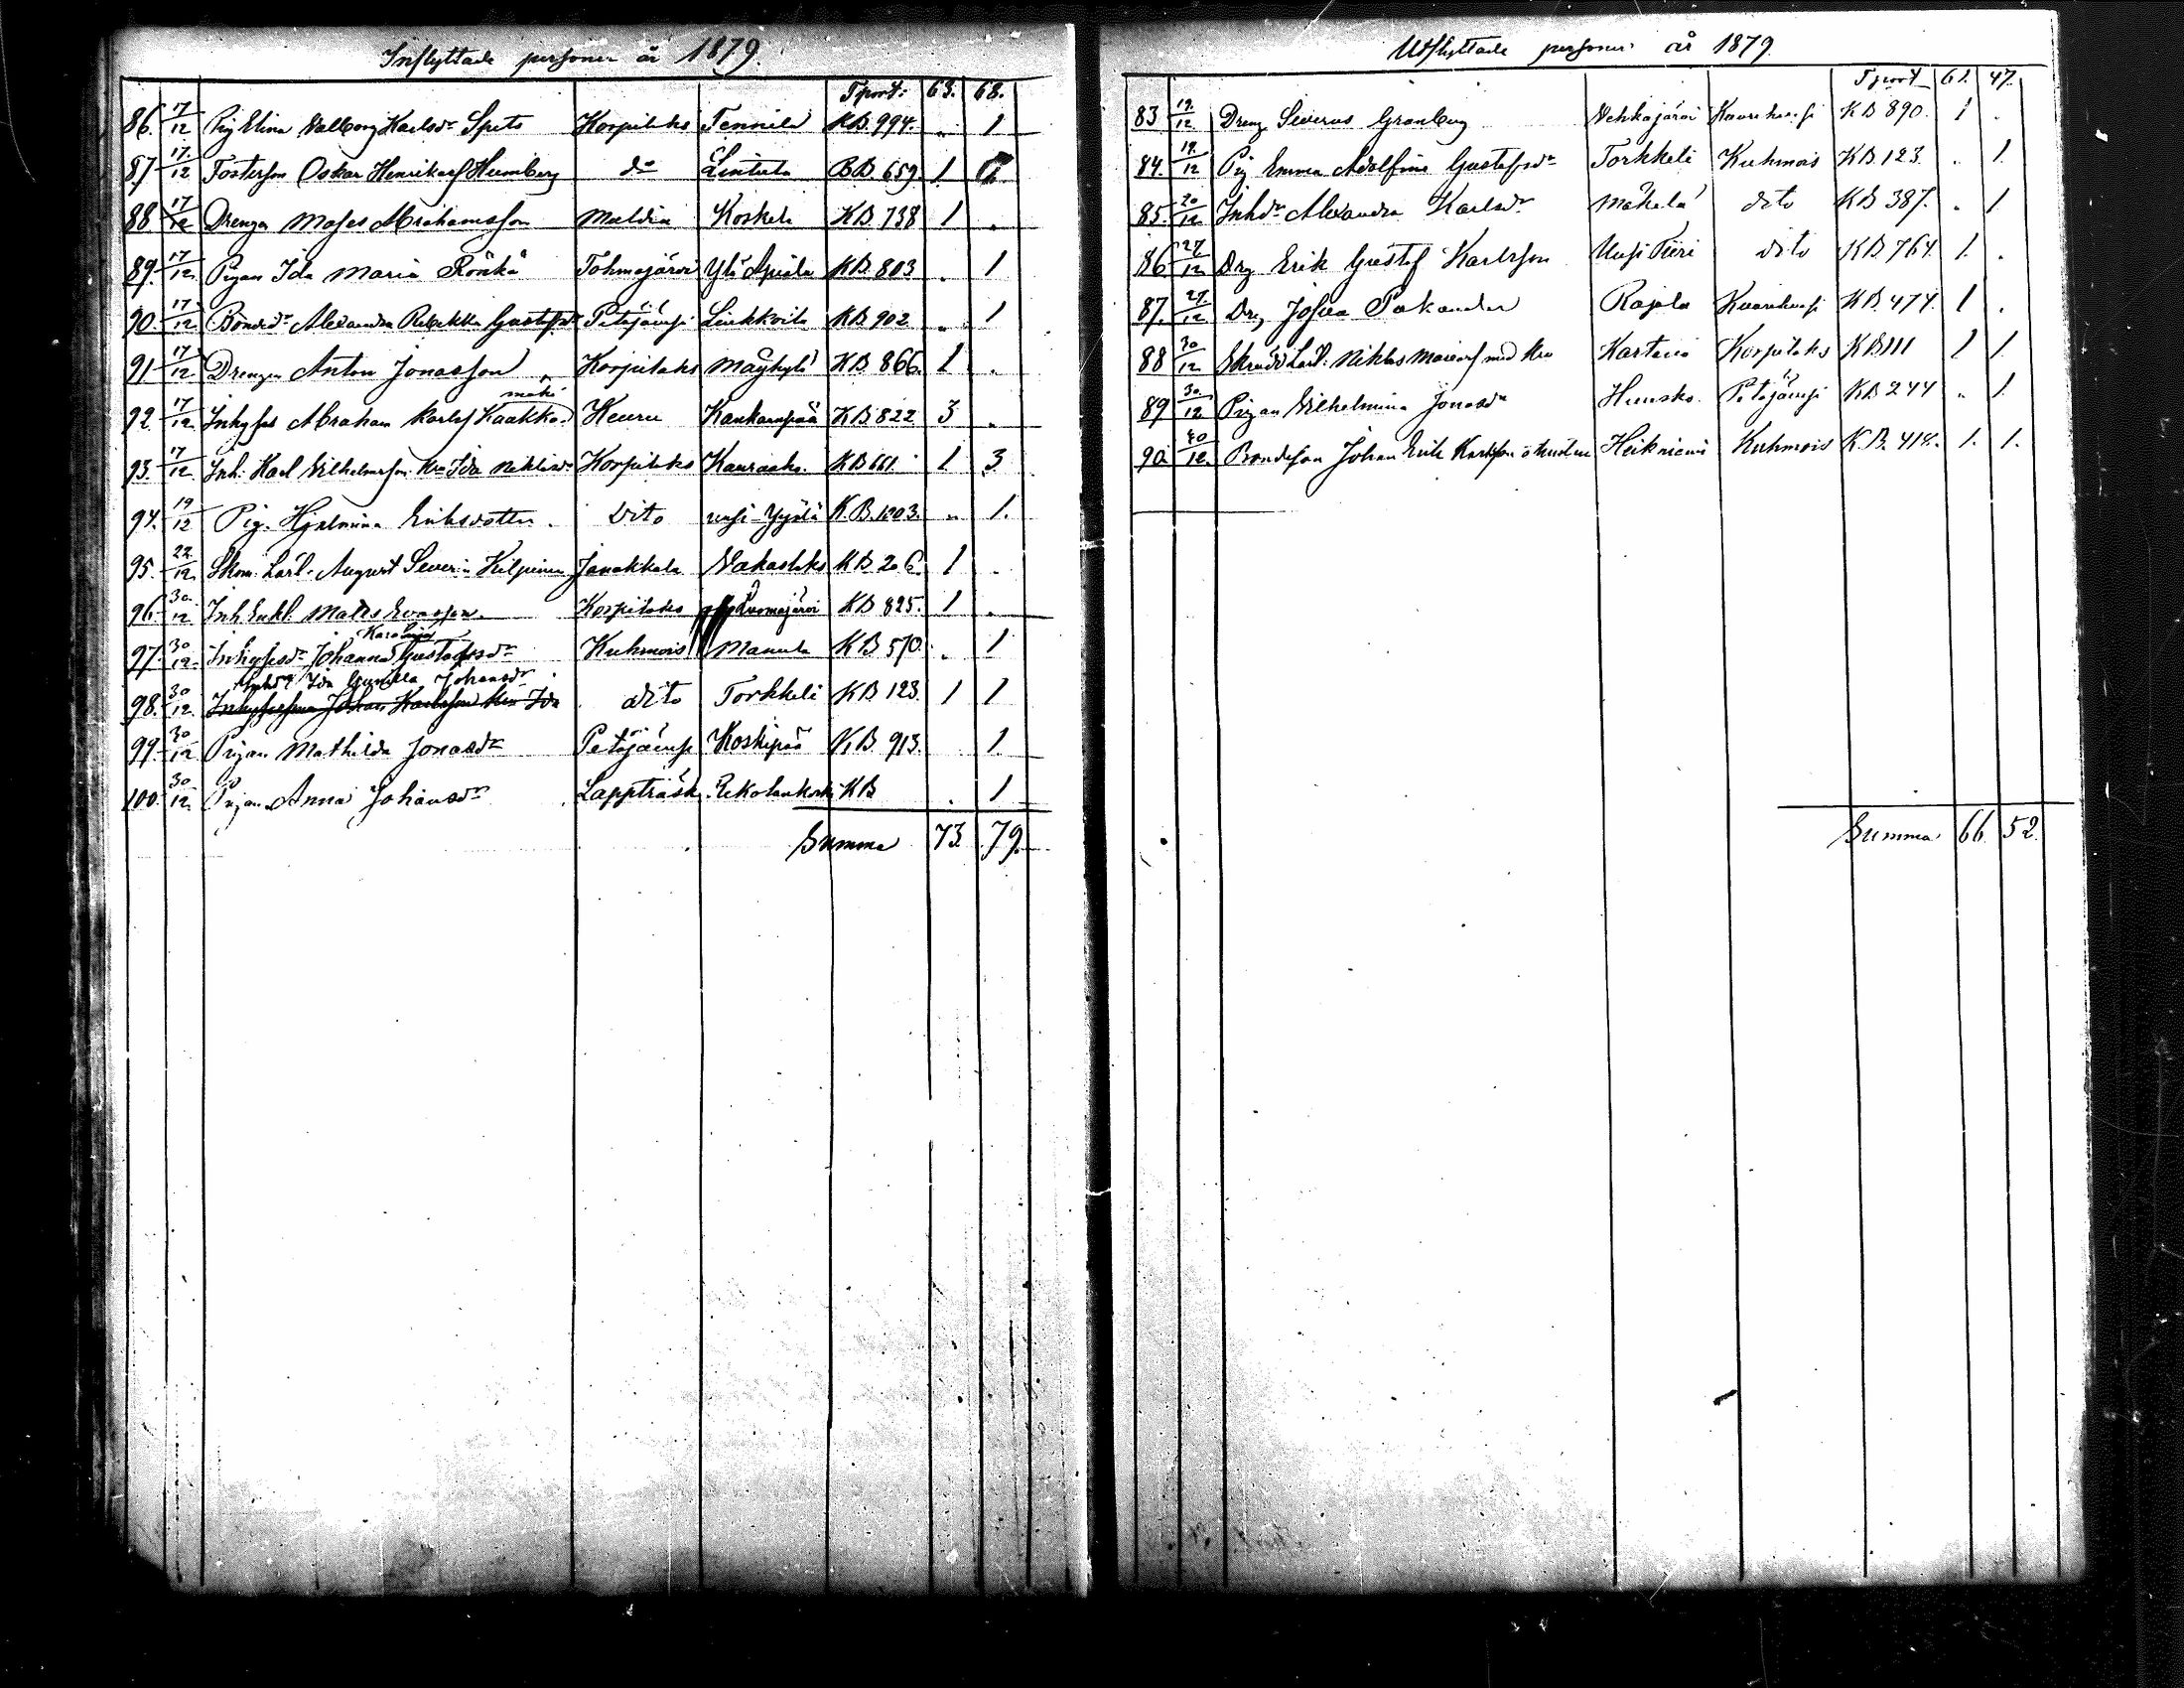 Inflyttade personer år 1879.
Tport. 63. 68.
86. 17/12 Pig Elina Valborg Karlsdr Spets Korpilaks Tennilä KB. 994. „ 1
87. 17/12 Fosterson Oskar Henrikss Humberg do Lintula BB. 659 1
88 17/12 Drengen Moses Abrahamsson Multia Koskela KB. 738 1 „
89. 17/12 Pigan Ida Maria Rönkä Tohmajärvi Yli KB. 803 „ 1
90. 17/12 Bondedr Alexandra Rebekka Gustafsdr Petäjävesi KB. 902 „ 1
91 17/12 Drengen Anton Jonasson Korpilaks KB. 866. 1 „
mäki
92. 17/12 Inhyses Abraham Karlss Kaakko Keuru Kankaanpää KB. 822 3 „
93. 17/12 Inh. Karl Vilhelmsson Ida Niklisdr Korpilaks KB 661. 1 3
94. 19/12 Pig. Hjelmina Eriksdotter. dito uusi-Yijälä K.B. 1203. „ 1.
95. 22/12 Skom. Lärl. August Severin Kilpinen Janakkala KB 206. 1 „
96. 30/12 Inh. Enkl. Matts Korpilaks Luomajärvi KB 825. 1 „
Karolina
97. 30/12 Inhysesdr Johanna Gustafsdr Kuhmois Mannila KB 570. „ 1
Inhdr Ida Gunilla Johansdr
98. 30/12 Johan Karlsson Ida dito Torkkeli KB 123. 1 1
99. 30/12 Pigan Mathilda Jonasdr Petäjävesi Koskipää KB. 913. 1
100. 30/12 Pigan Anna Johansdr Lappträsk KB „ 1
Summa 73. 79.
Utflyttade personer år 1879.
Tport 61. 47.
83 19/12 Dreng Severus Granberg Vehkajärvi KB 890. 1 „
84. 19/12 Pig Emma Adolfina Gustafsdr Torkkeli Kuhmois KB. 123. „ 1.
85. 20/12 Inhdr Alexandra Karlsdr Mäkelä dito KB 387. „ 1
86 27/12 Drg Erik Gustaf Karlsson Uusi Tiiri dito KB 764. 1. „
87. 27/12 Drg Josua Pakander Rajala KB. 477. 1 „
88 30/12 Niklas med Korpilaks KB 111 1 1
89 30/12 Pigan Vilhelmina Jonasdr Petäjävesi KB 244 „ 1.
90. 30/12. Bondeson Johan Erik Karlsson o hustru Heikniemi Kuhmois K.B. 418. 1. 1.
Summa 66 52.